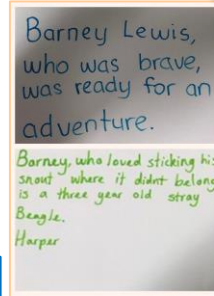 Barney Lewis,
who was brave,
was ready for an
adventure.
Barney, who loved sticking his
snout where it didnt belong
is a three year old stray
Beagle.
Harper